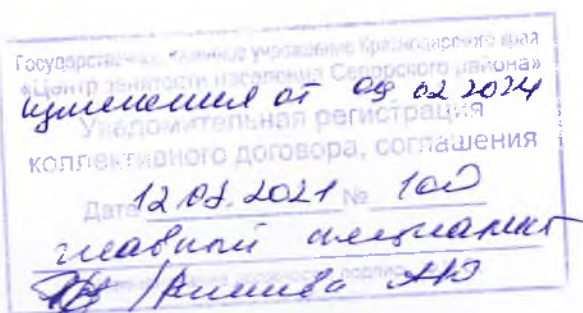 Государственное казенное учреждение Краснодарского края
«Центр занятости населения Северского района»
изменения от 09 02 2024
Уведомительная регистрация
коллективного договора, соглашения
Дата 12.03.2021 № 100
главный специалист
подпись